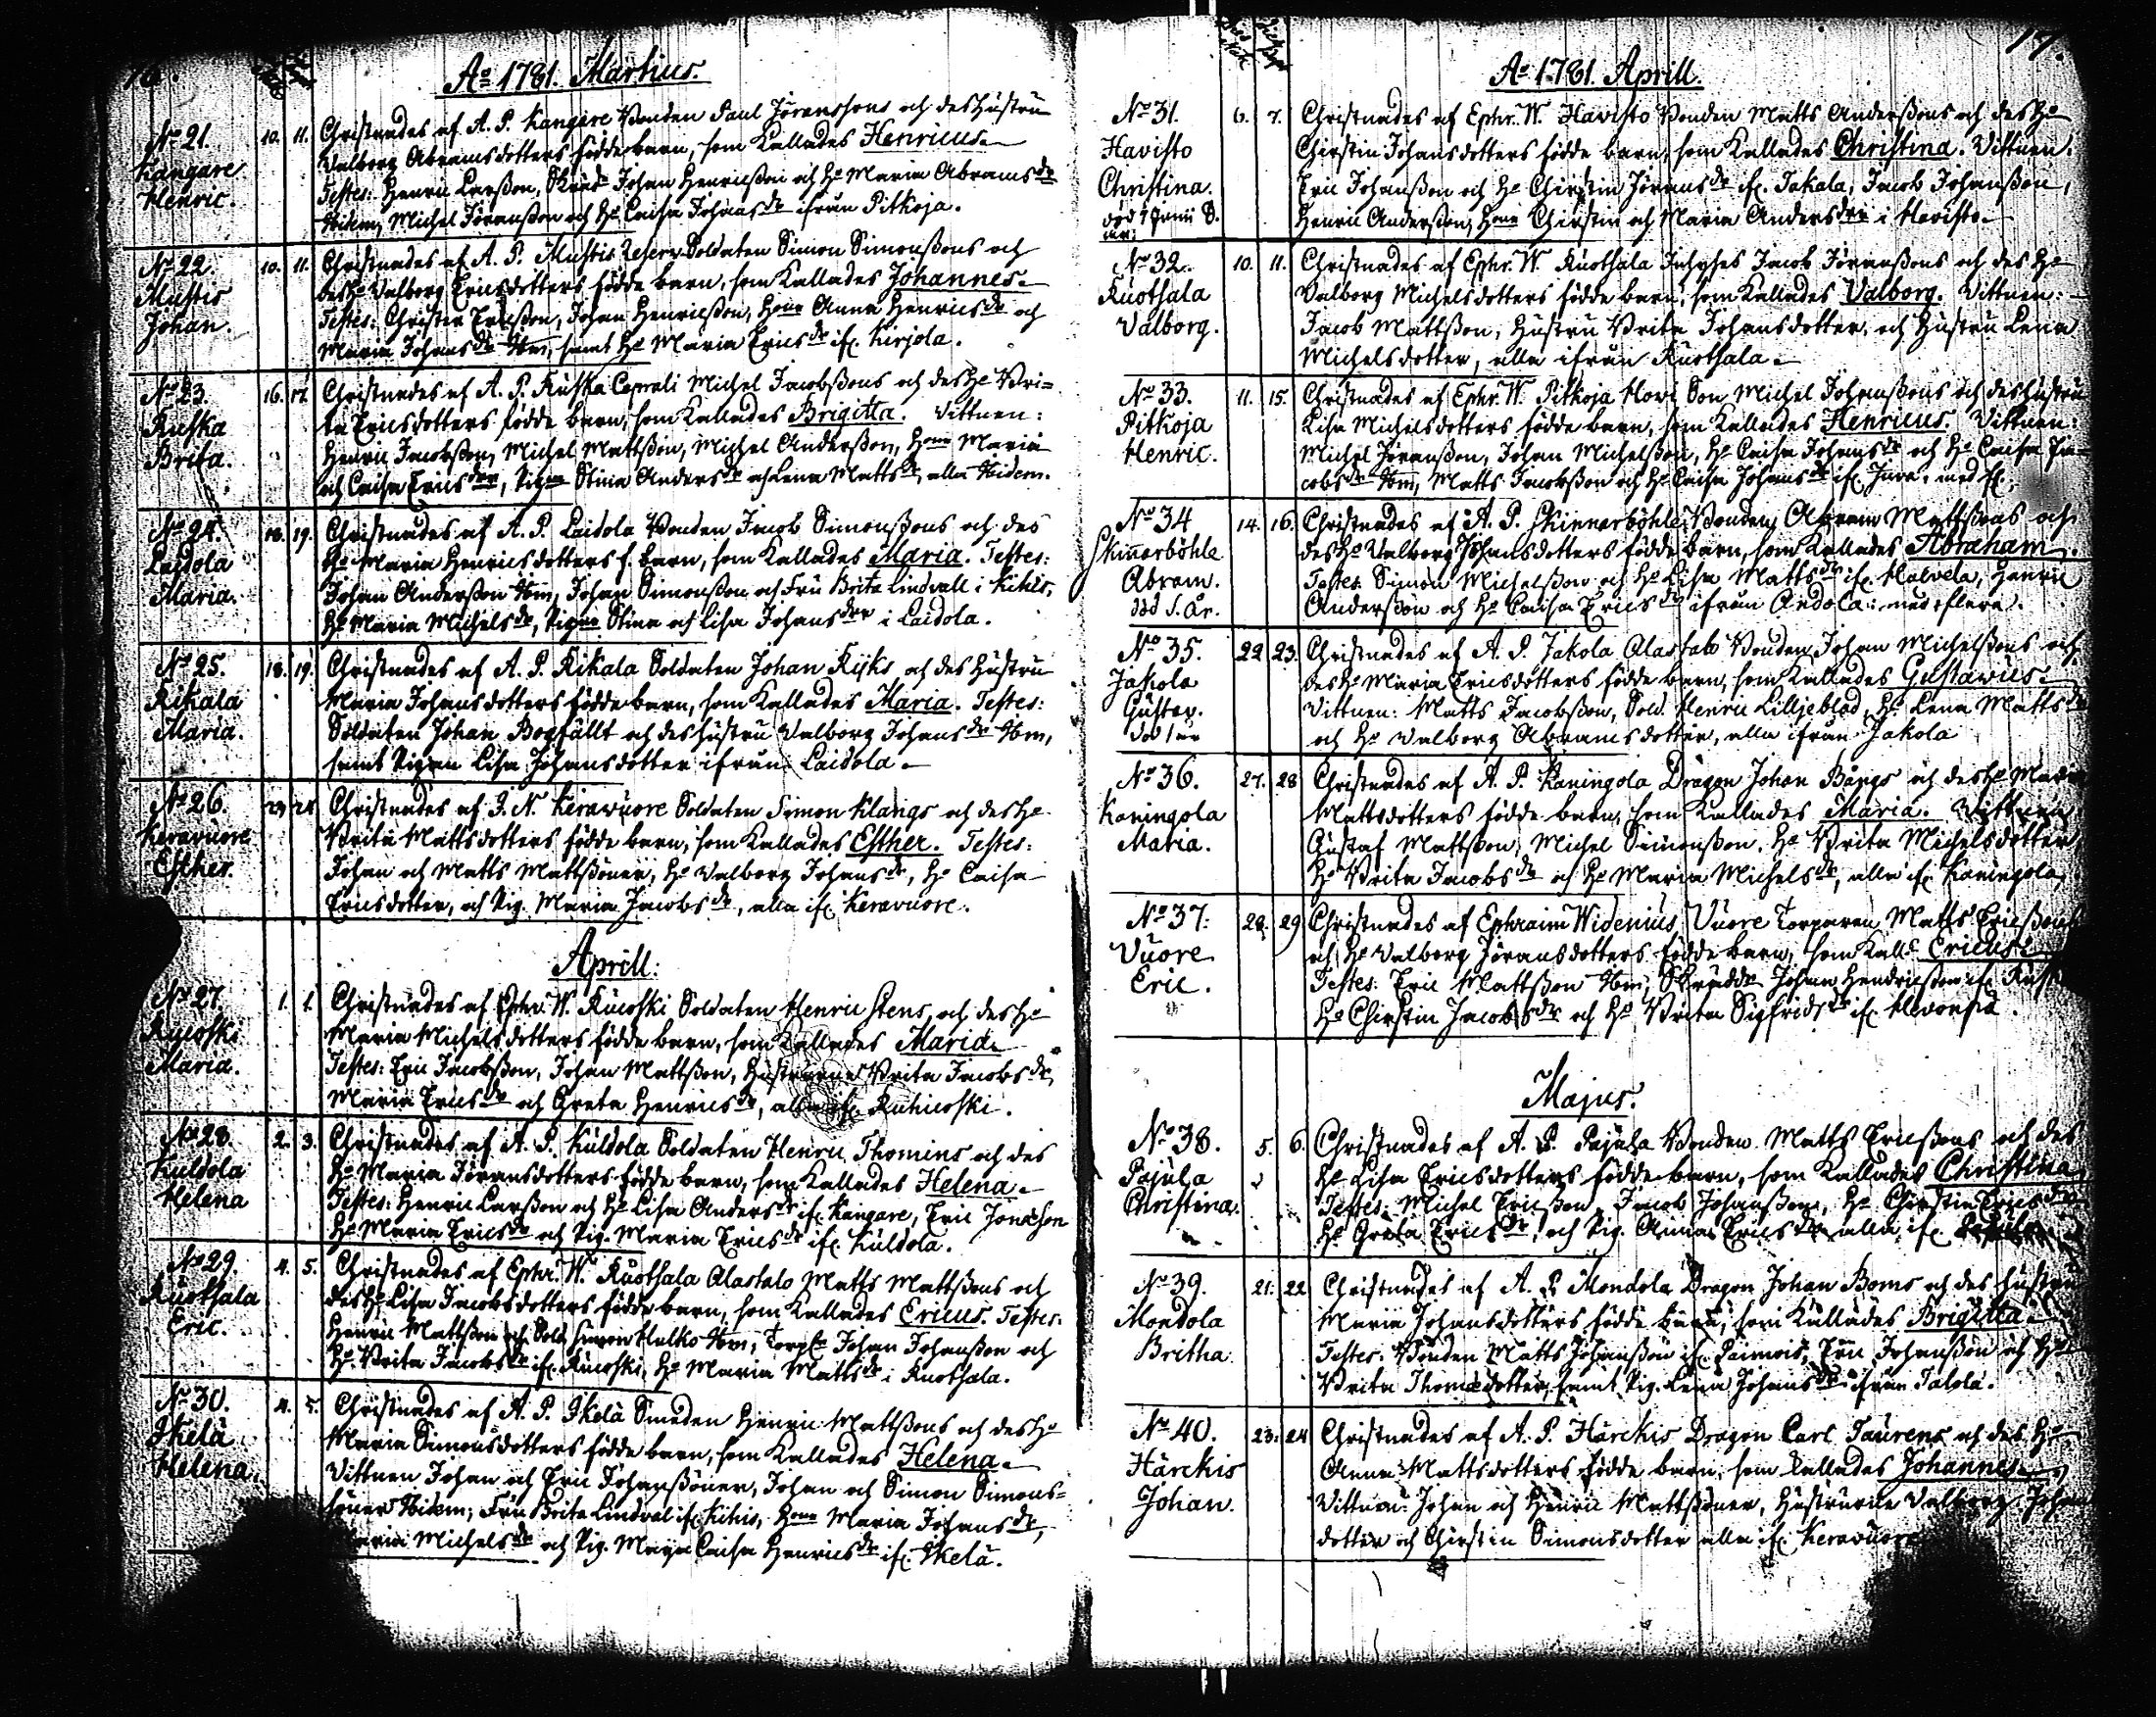 16.
Aº 1781. Martius.
Nº 21.
Kangare
Henric.
10. 11.
Christnades af A. P. Kangare Bonden Paul Jöranssons och des hustru
Valborg Abramsdotters födde barn, som kallades Henricus.
Testes: Henric Larsson, Skrädr Johan Henricsson och Ho Maria Abramsdr
Ibidem, Michel Göransson och Ho Caisa Johansdr ifrån Pitkoja.
Nº 22.
Mustis
Johan.
10. 11.
Christnades af A. P. Mustis Reserv Soldaten Simon Simonssons och
des Ho Valborg Ericsdotters födde barn, som kallades Johannes.
Testes: Christer Ericsson, Johan Henricsson, Hona Anna Henricsdr och
Maria Johansdr Ibm, samt Ho Maria Ericsdr if. Kirjola.
Nº 23.
Ruska
Brita.
16. 17.
Christnades af A. P. Ruska Caprali Michel Jacobssons och des Ho Bri=
ta Ericsdotters födde barn, som kallades Brigitta. Vittnen:
Henric Jacobsson, Michel Mattsson, Michel Andersson, Hona Maria
och Caisa Ericsdrr, Pigna Stina Andersdr och Lena Mattsdr, alla Ibidem.
Nº 24.
Laidola
Maria.
18. 19.
Christnades af A. P. Laidola Bonden Jacob Simonssons och des
Ho Maria Henricsdotters f. barn, som kallades Maria. Testes:
Johan Andersson Ibm, Johan Simonsson och Fru Brita Lindvall i Kihis,
Ho Maria Michelsdr, Pigna Stina och Lisa Johansdrr i Laidola.
Nº 25.
Rikala
Maria.
18. 19.
Christnades af A. P. Rikala Soldaten Johan Rijks och des hustru
Maria Johansdotters födde barn, som kallades Maria. Testes:
Soldaten Johan Bogfällt och des hustru Valborg Johansdr Ibm,
samt Pigan Lisa Johansdotter ifrån Laidola.
Nº 26.
Keravuore
Esther.
Christnades af J. N. Keravuore Soldaten Simon Klangs och des Ho
Brita Mattsdotters födde barn, som kallades Esther. Testes:
Johan och Matts Mattssöner, Ho Valborg Johansdr, Ho Caisa
Ericsdotter, och Pig. Maria Jacobsdr, alla if. Keravuore.
Aprill:
Nº 27.
Rucoski
Maria.
1. 1.
Christnades af Ephr. W. Rucoski Soldaten Henric Stens, och des Ho
Maria Michelsdotters födde barn, som kallades Maria.
Testes: Eric Jacobsson, Johan Mattsson, Hustrurne Brita Jacobsdr,
Maria Ericsdr och Greta Henricsdr, alla if. Ruhucoski.
Nº 28.
Kuldola
Helena
2. 3.
Christnades af A. P. Kuldola Soldaten Henric Thomins och des
Ho Maria Göransdotters födde barn, som kallades Helena.
Testes: Henric Larsson och Ho Lisa Andersdr if. Kangare, Eric Jonæson
Ho Maria Ericsdr och Pig. Maria Ericsdr if. Kuldola.
Nº 29.
Ruotsala
Eric.
4. 5.
Christnades af Ephr. W. Ruotsala Alastalo Matts Mattssons och
des Ho Lisa Jacobsdotters födde barn, som kallades Ericus. Testes:
Henric Mattsson och Sold. Simon Hulko Ibm, Torpr Johan Johansson och
Ho Brita Jacobsdr if. Rucoski, Ho Maria Mattsdr i Ruotsala.
Nº 30.
Ikelä
Helena.
4. 5.
Christnades af A. P. Ikelä Smeden Henric Mattssons och des Ho
Maria Simonsdotters födde barn, som kallades Helena.
Vittnen Johan och Eric Johanssöner, Johan och Simon Simons=
söner Ibidem, Fru Brita Lindval if. Kihis, Hona Maria Johansdr,
Maria Michelsdr och Pig. Maja Caisa Henricsdr if. Ikelä.
17.
Aº 1781. Aprill.
Nº 31.
Havisto
Christina.
död 7 Junii S.
år.
6. 7.
Christnades af Ephr. W. Havisto Bonden Matts Anderssons och des Ho
Christin Johansdotters födde barn, som kallades Christina. Vittnen.
Eric Johansson och Ho Christin Göransdr if. Takala, Jacob Johansson,
Henric Andersson, Hona Christin och Maria Andersdrr i Havisto.
Nº 32.
Ruotsala
Valborg.
10. 11.
Christnades af Ephr. W. Ruotsala Inhyses Jacob Göranssons och des Ho
Valborg Michelsdotters födde barn, som kallades Valborg. Vittnen:
Jacob Mattsson, Hustru Brita Johansdotter, och Hustru Lena
Michelsdotter, alla ifrån Ruotsala.
Nº 33.
Pitkoja
Henric.
11. 15.
Christnades af Ephr. W. Pitkoja Hovi Son Michel Johanssons och des hustru
Lisa Michelsdotters födde barn, som kallades Henricus. Vittnen:
Michel Göransson, Johan Michelsson, Ho Caisa Johansdr och Ho Caisa Ja=
cobsdr Ibm, Matts Jacobsson och Ho Caisa Johansdr if. Juva. med fl.
Nº 34
Skinnarböhle
Abram.
död S. år.
14. 16.
Christnades af A. P. Skinnarböhle Bonden Abram Mattssons och
des Ho Valborg Johansdotters födde barn, som kallades Abraham.
Testes Simon Michelsson och Ho Lisa Mattsdr if. Halvela, Henric
Andersson och Ho Caisa Ericsdr ifrån Andola: med flera.
Nº 35.
Jakola
Gustav.
död 1 år
22 23.
Christnades af A. P. Jakola Alastalo Bonden Johan Michelssons och
des Ho Maria Ericsdotters födde barn, som kallades Gustavus.
Vittnen: Matts Jacobsson, Sold. Henric Lilljeblad, Ho Lena Mattsdr
och Ho Valborg Abramsdotter, alla ifrån Jakola
Nº 36.
Kaningola
Maria.
27. 28
Christnades af A. P. Kaningola Dragon Johan Bångs och des Ho Maria
Mattsdotters födde barn, som kallades Maria. Vittnen
Gustaf Mattsson, Michel Simonsson, Ho Brita Michelsdotter,
Ho Brita Jacobsdr och Ho Maria Michelsdr, alla if. Kaningola,
Nº 37:
Vuore
Eric.
28. 29
Christnades af Ephraim Widenius Vuore Torparen Matts Ericssons
och Ho Valborg Göransdotters födde barn, som Kalls Ericus.
Testes: Eric Mattsson Ibm, Skräddr Johan Hendricsson if.
Ho Christin Jacobsdr och Ho Brita Sigfridsdr if. Hevonpä.
Majus.
Nº 38.
Pajula
Christina.
5. 6.
Christnades af A. P. Pajula Bonden Matts Ericssons och des
Ho Lisa Ericsdotters födde barn, som kallades Christina
Testes: Michel Ericsson, Jacob Johansson, Ho Christin Ericsdr
Ho Greta Ericsdr, och Pig. Anna Ericsdr alla if.
Nº 39.
Mondola
Britha.
21. 22
Christnades af A. P. Mondola Dragon Johan Boms och des hustru
Maria Johansdotters födde barn, som kallades Brigitta.
Testes. Bonden Matts Johansson if. Paimois, Eric Johansson och Ho
Brita Thomædotter, samt Pig. Lena Johansdr ifrån Talola.
Nº 40.
Härckis
Johan.
23. 24
Christnades af A. P. Härckis Dragon Carl Taurens och des Ho
Anna Mattsdotters födde barn, som kallades Johannes.
Vittnen: Johan och Henric Mattssöner, Hustrurne Valborg Johans
dotter och Christin Simonsdotter alla if. Keravuore